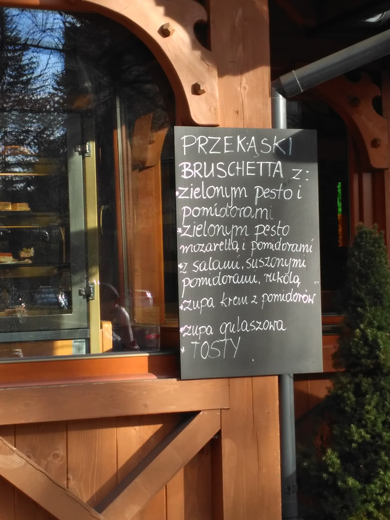 PRZEKĄSKI
BRUSCHETTA z:
• zielonym pesto i
pomidorami
• zielonym pesto
mozarellą i pomidorami
• z salami, suszonymi
pomidorami, rukolą
• zupa krem z pomidorów
• zupa gulaszowa
• TOSTY